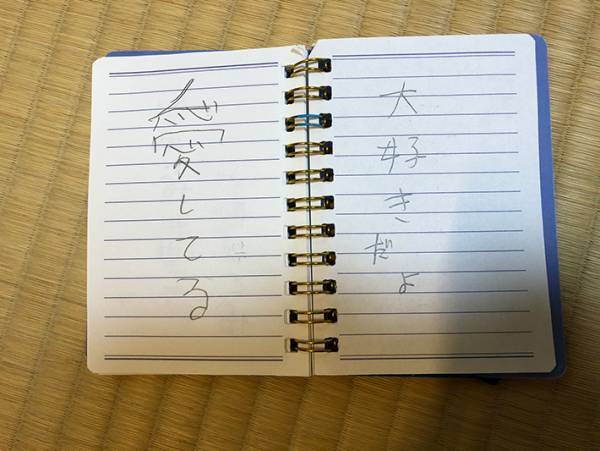 大好きだよ
愛してる